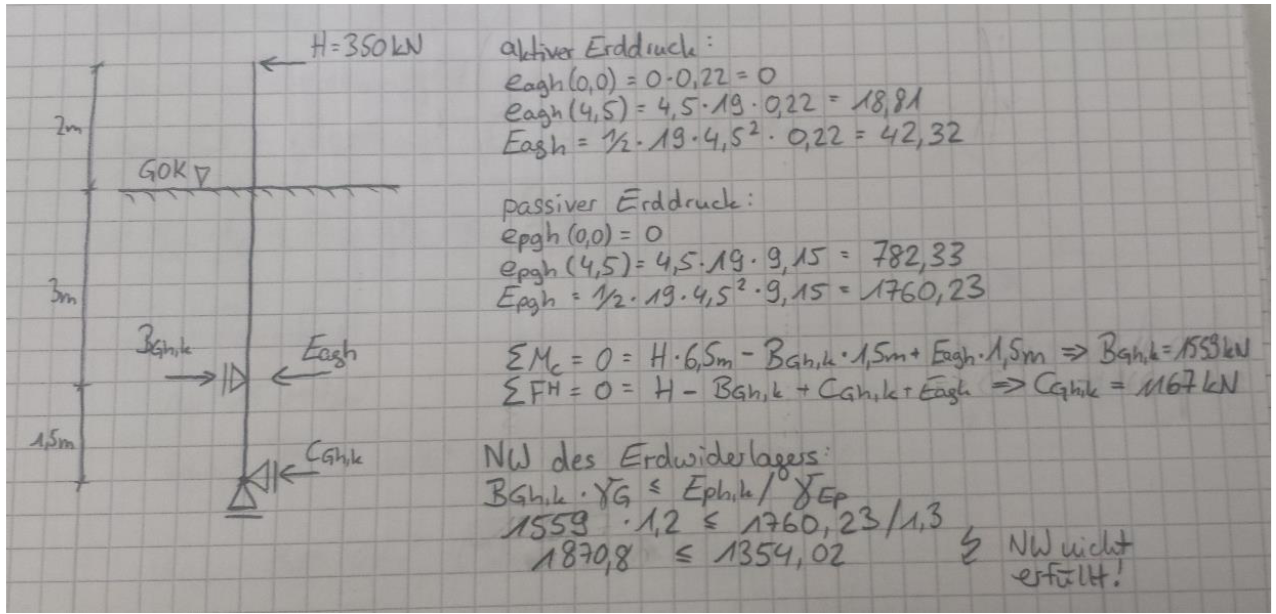 H = 350 kN
2m
GOK ▽
3m
BGh,k
Eagh
1,5m
CGh,k
aktiver Erddruck:
eagh (0,0) = 0·0,22 = 0
eagh (4,5) = 4,5 · 19 · 0,22 = 18,81
Eagh = 1/2 · 19 · 4,5² · 0,22 = 42,32
passiver Erddruck:
epgh (0,0) = 0
epgh (4,5) = 4,5 · 19 · 9,15 = 782,33
Epgh = 1/2 · 19 · 4,5² · 9,15 = 1760,23
ΣMc = 0 = H · 6,5m − BGh,k · 1,5m + Eagh · 1,5m ⇒ BGh,k = 1559 kN
ΣFH = 0 = H − BGh,k + CGh,k + Eagh ⇒ CGh,k = 1167 kN
NW des Erdwiderlagers:
BGh,k · γG ≤ Eph,k / γEp
1559 · 1,2 ≤ 1760,23 / 1,3
1870,8 ≤ 1354,02 NW nicht
erfüllt!